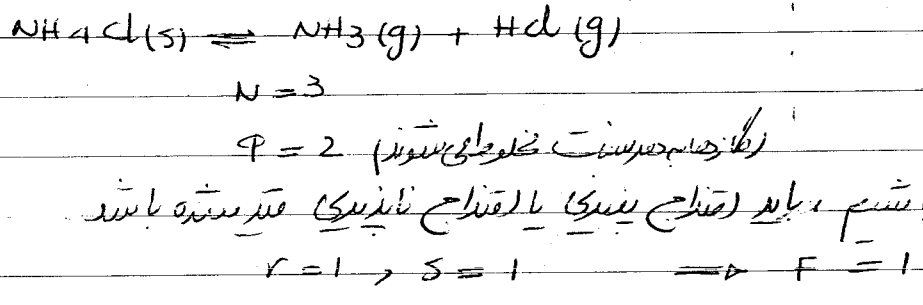 NH4Cl(s) ⇌ NH3(g) + HCl(g)
N = 3
φ = 2 (گازها به هر نسبت مخلوط می‌شوند)
باشیم، باید امتزاج پذیری یا امتزاج ناپذیری قید شده باشد
r = 1 , S = 1 ⇒ F = 1